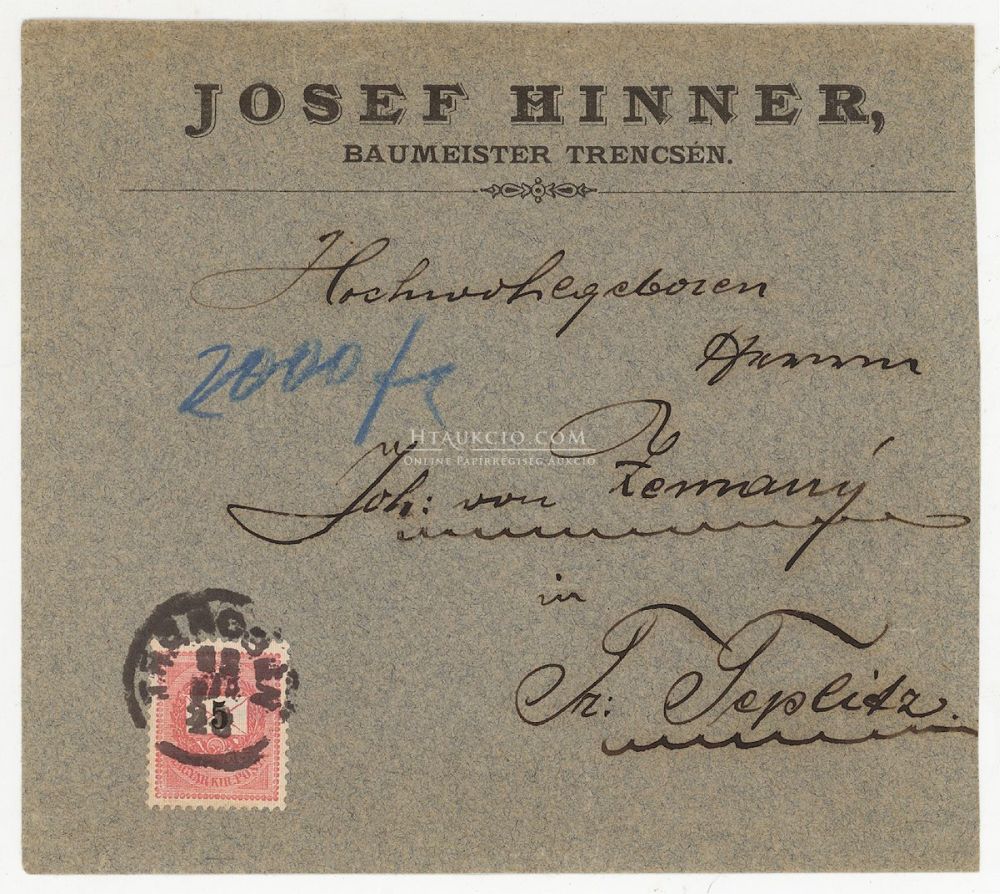 JOSEF HINNER,
BAUMEISTER TRENCSÉN.
Hochwohlgeboren
Herrn
2000 f
HTAUKCIO.COM
ONLINE PAPÍRRÉGISÉG AUKCIÓ
Joh: von Zemany
in
Tr: Teplitz.
TRENCSÉN
92
25
5
MAGYAR KIR. POSTA